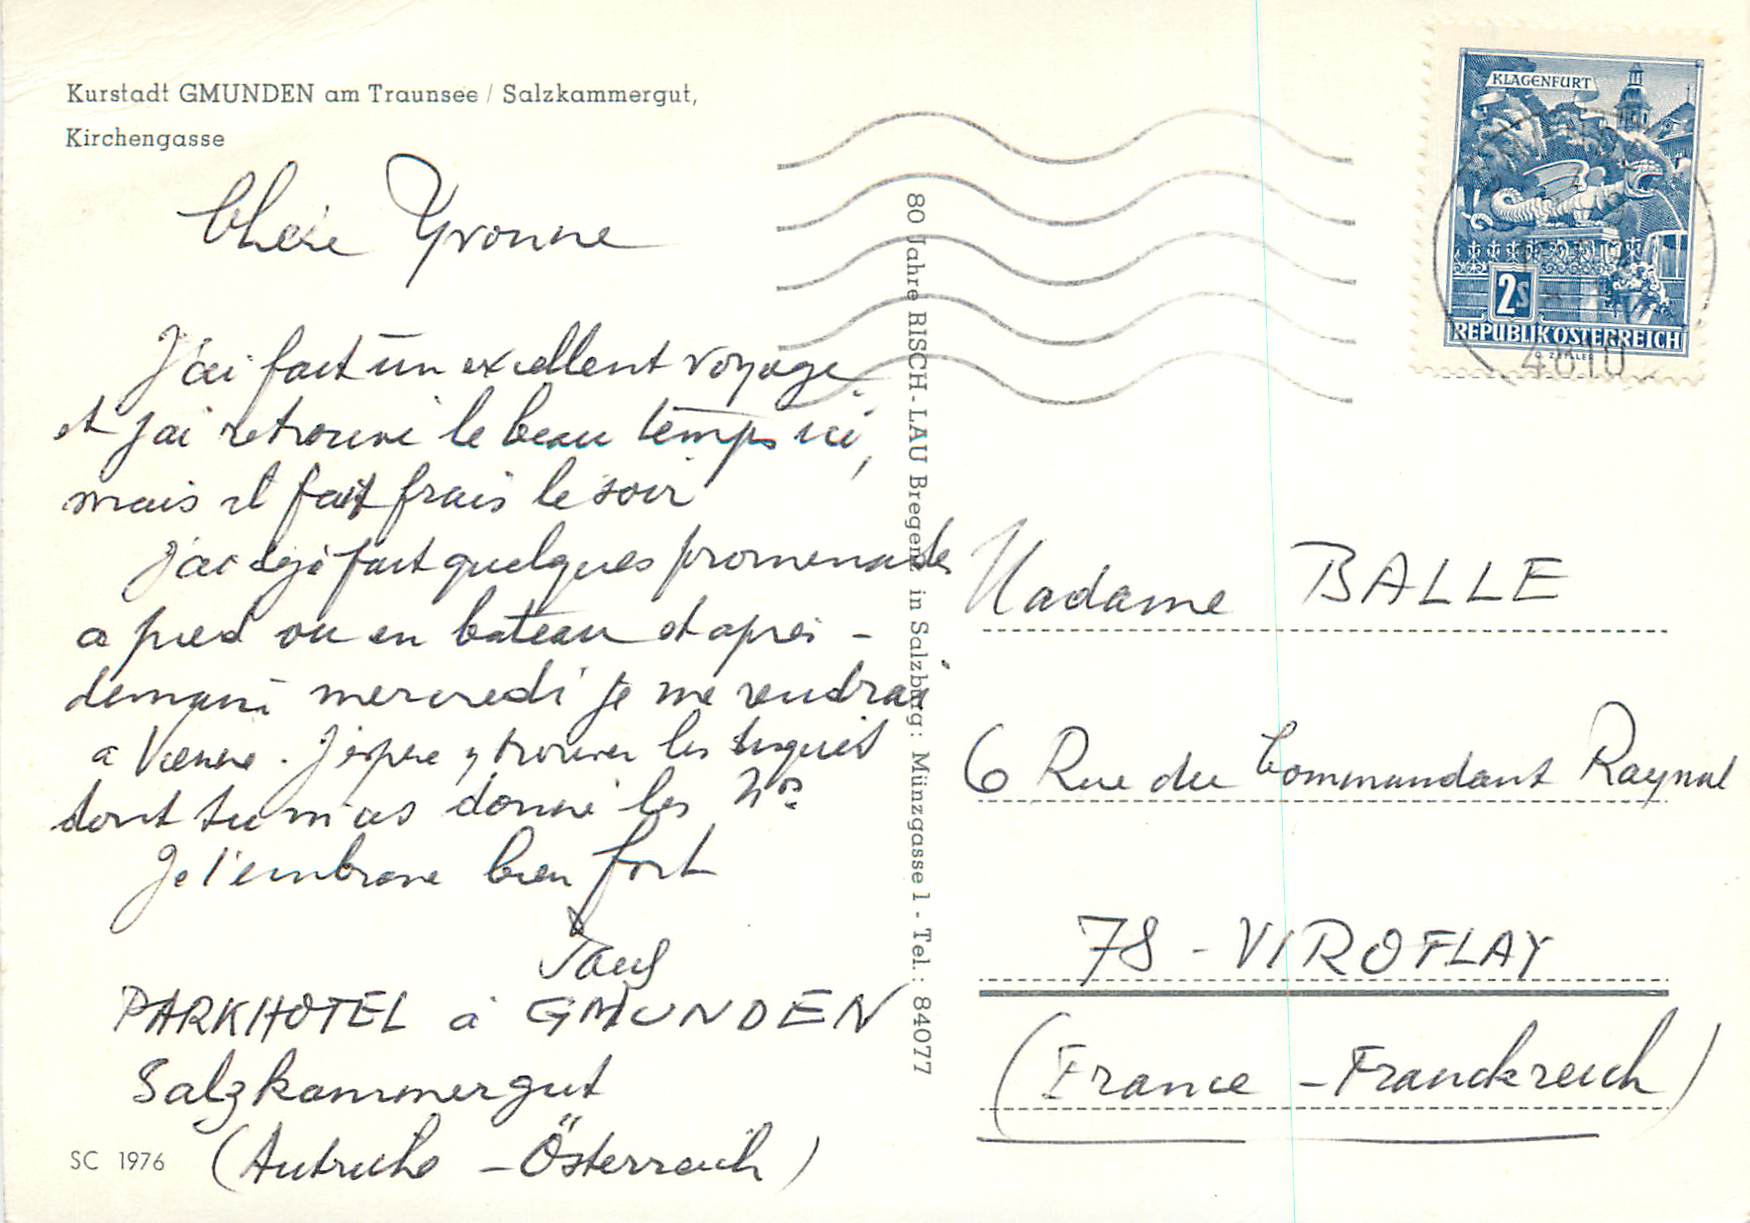 Kurstadt GMUNDEN am Traunsee / Salzkammergut,
Kirchengasse
Chère Yvonne
J'ai fait un excellent voyage
et j'ai retrouvé le beau temps ici,
mais il fait frais le soir
J'ai déjà fait quelques promenades
a pied ou en bateau et après-
demain mercredi je me rendrai
a Vienne. J'espère y trouver les
dont tu m'as donné les Nos.
Je t'embrasse bien fort
Paul
PARKHOTEL à GMUNDEN
Salzkammergut
(Autriche - Österreich)
SC 1976
80 Jahre RISCH-LAU Bregenz in Salzburg: Münzgasse 1 - Tel.: 84077
KLAGENFURT
2S
REPUBLIK ÖSTERREICH
4810
Madame BALLE
6 Rue du Commandant Raynal
78 - VIROFLAY
(France - Franckreich)